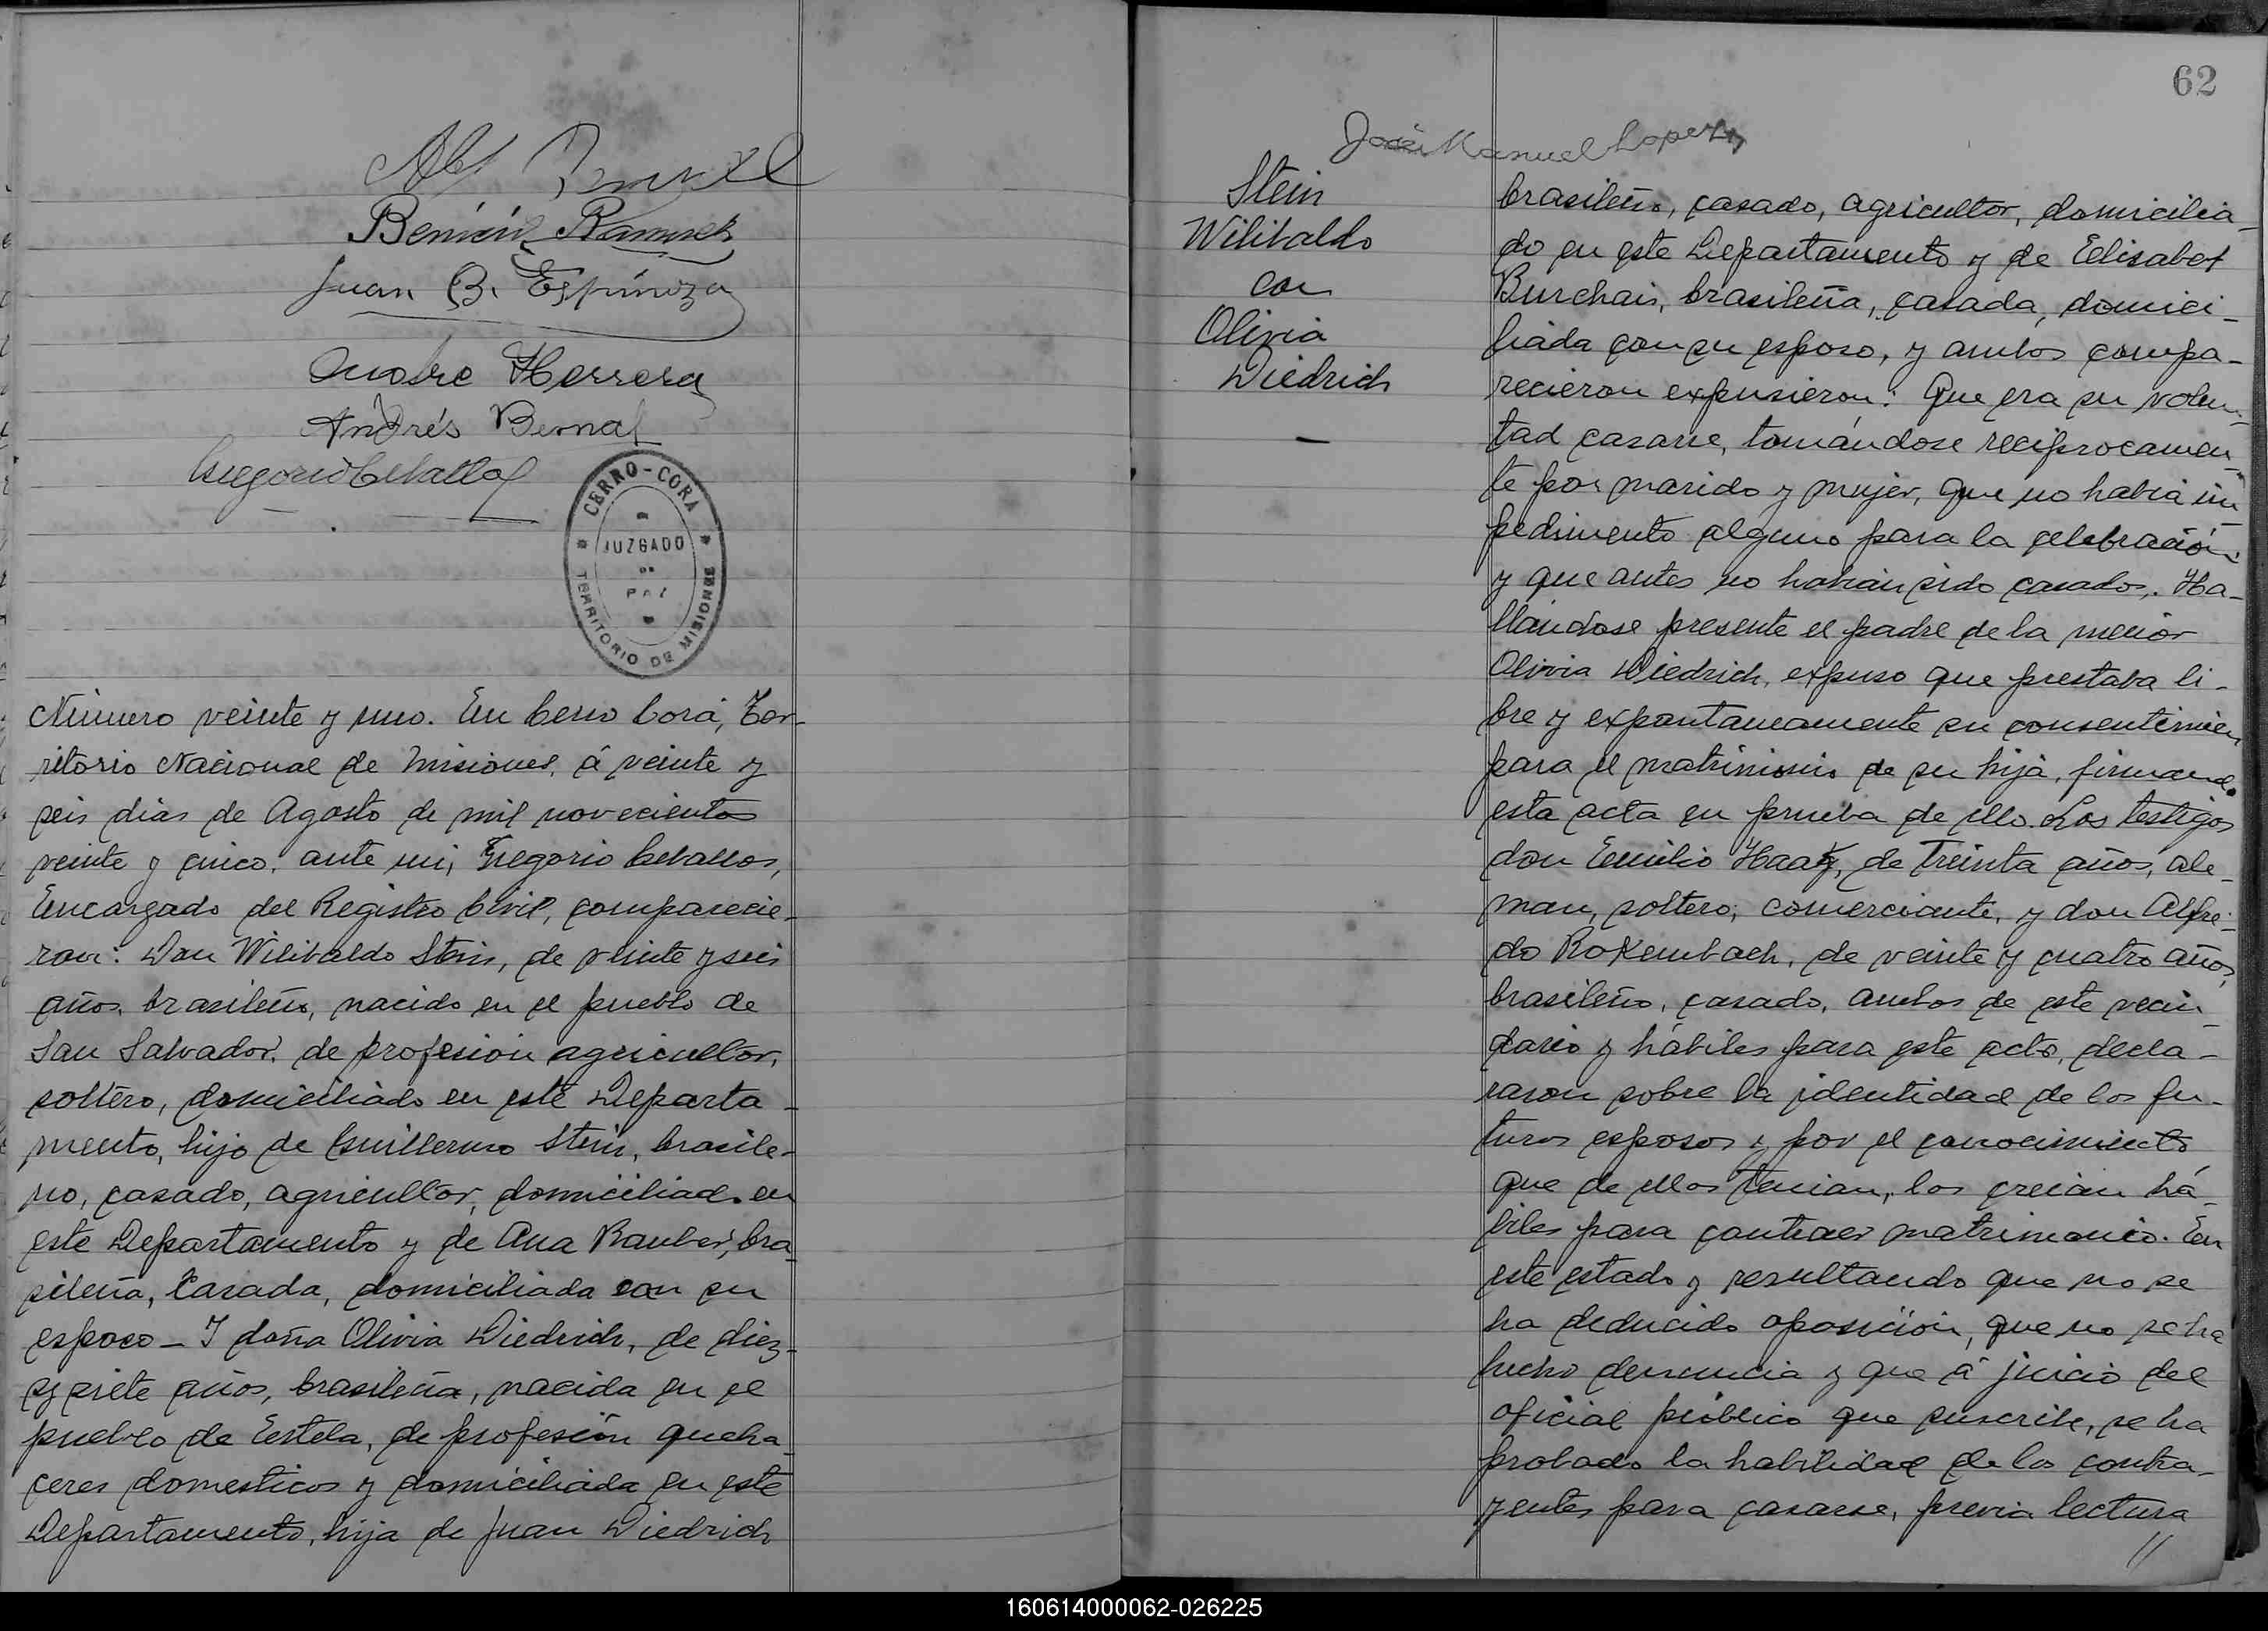 Benicio Ramirez
Juan B. Espinoza
Onofre Herrera
Andrés Bernal
Gregorio Ceballos
CERRO-CORA
JUZGADO
DE
PAZ
TERRITORIO DE MISIONES
Número veinte y uno. En Cerro Corá, Ter-
ritorio Nacional de Misiones, á veinte y
seis dias de Agosto de mil novecientos
veinte y cinco, ante mi, Gregorio Ceballos,
Encargado del Registro Civil, comparecie-
ron: Don Wilibaldo Stein, de veinte y seis
años, brasileño, nacido en el pueblo de
San Salvador, de profesión agricultor,
soltero, domiciliado en este Departa-
mento, hijo de Guillermo Stein, brasile-
ño, casado, agricultor, domiciliado en
este Departamento y de Ana Rauber, bra-
sileña, casada, domiciliada con su
esposo - I doña Olivia Diedrich, de diez
y siete años, brasileña, nacida en el
pueblo de Estela, de profesión queha-
ceres domesticos y domiciliada en este
Departamento, hija de Juan Diedrich
62
José Manuel Lopez
Stein
Wilibaldo
con
Olivia
Diedrich
—
brasileño, casado, agricultor, domicilia-
do en este Departamento y de Elisabet
Burchais, brasileña, casada, domici-
liada con su esposo, y ambos compa-
recieron expusieron: Que era su volun-
tad casarse, tomándose reciprocamen-
te por marido y mujer, que no habia im-
pedimento alguno para la celebración
y que antes no habian sido casados. Ha-
llándose presente el padre de la menor
Olivia Diedrich, expuso que prestaba li-
bre y expontaneamente su consentimien
para el matrimonio de su hija, firmando
esta acta en prueba de ello. Los testigos
don Emilio Haag, de treinta años, ale-
man, soltero, comerciante, y don Alfre-
do Rokembach, de veinte y cuatro años,
brasileño, casado, ambos de este vecin-
dario y hábiles para este acto, decla-
raron sobre la identidad de los fu-
turos esposos y por el conocimiento
que de ellos tenian, los creian há-
biles para contraer matrimonio. En
este estado y resultando que no se
ha deducido oposición, que no se ha
hecho denuncia y que á juicio del
oficial público que suscribe, se ha
probado la habilidad de los contra-
yentes para casarse, previa lectura
//
160614000062-026225